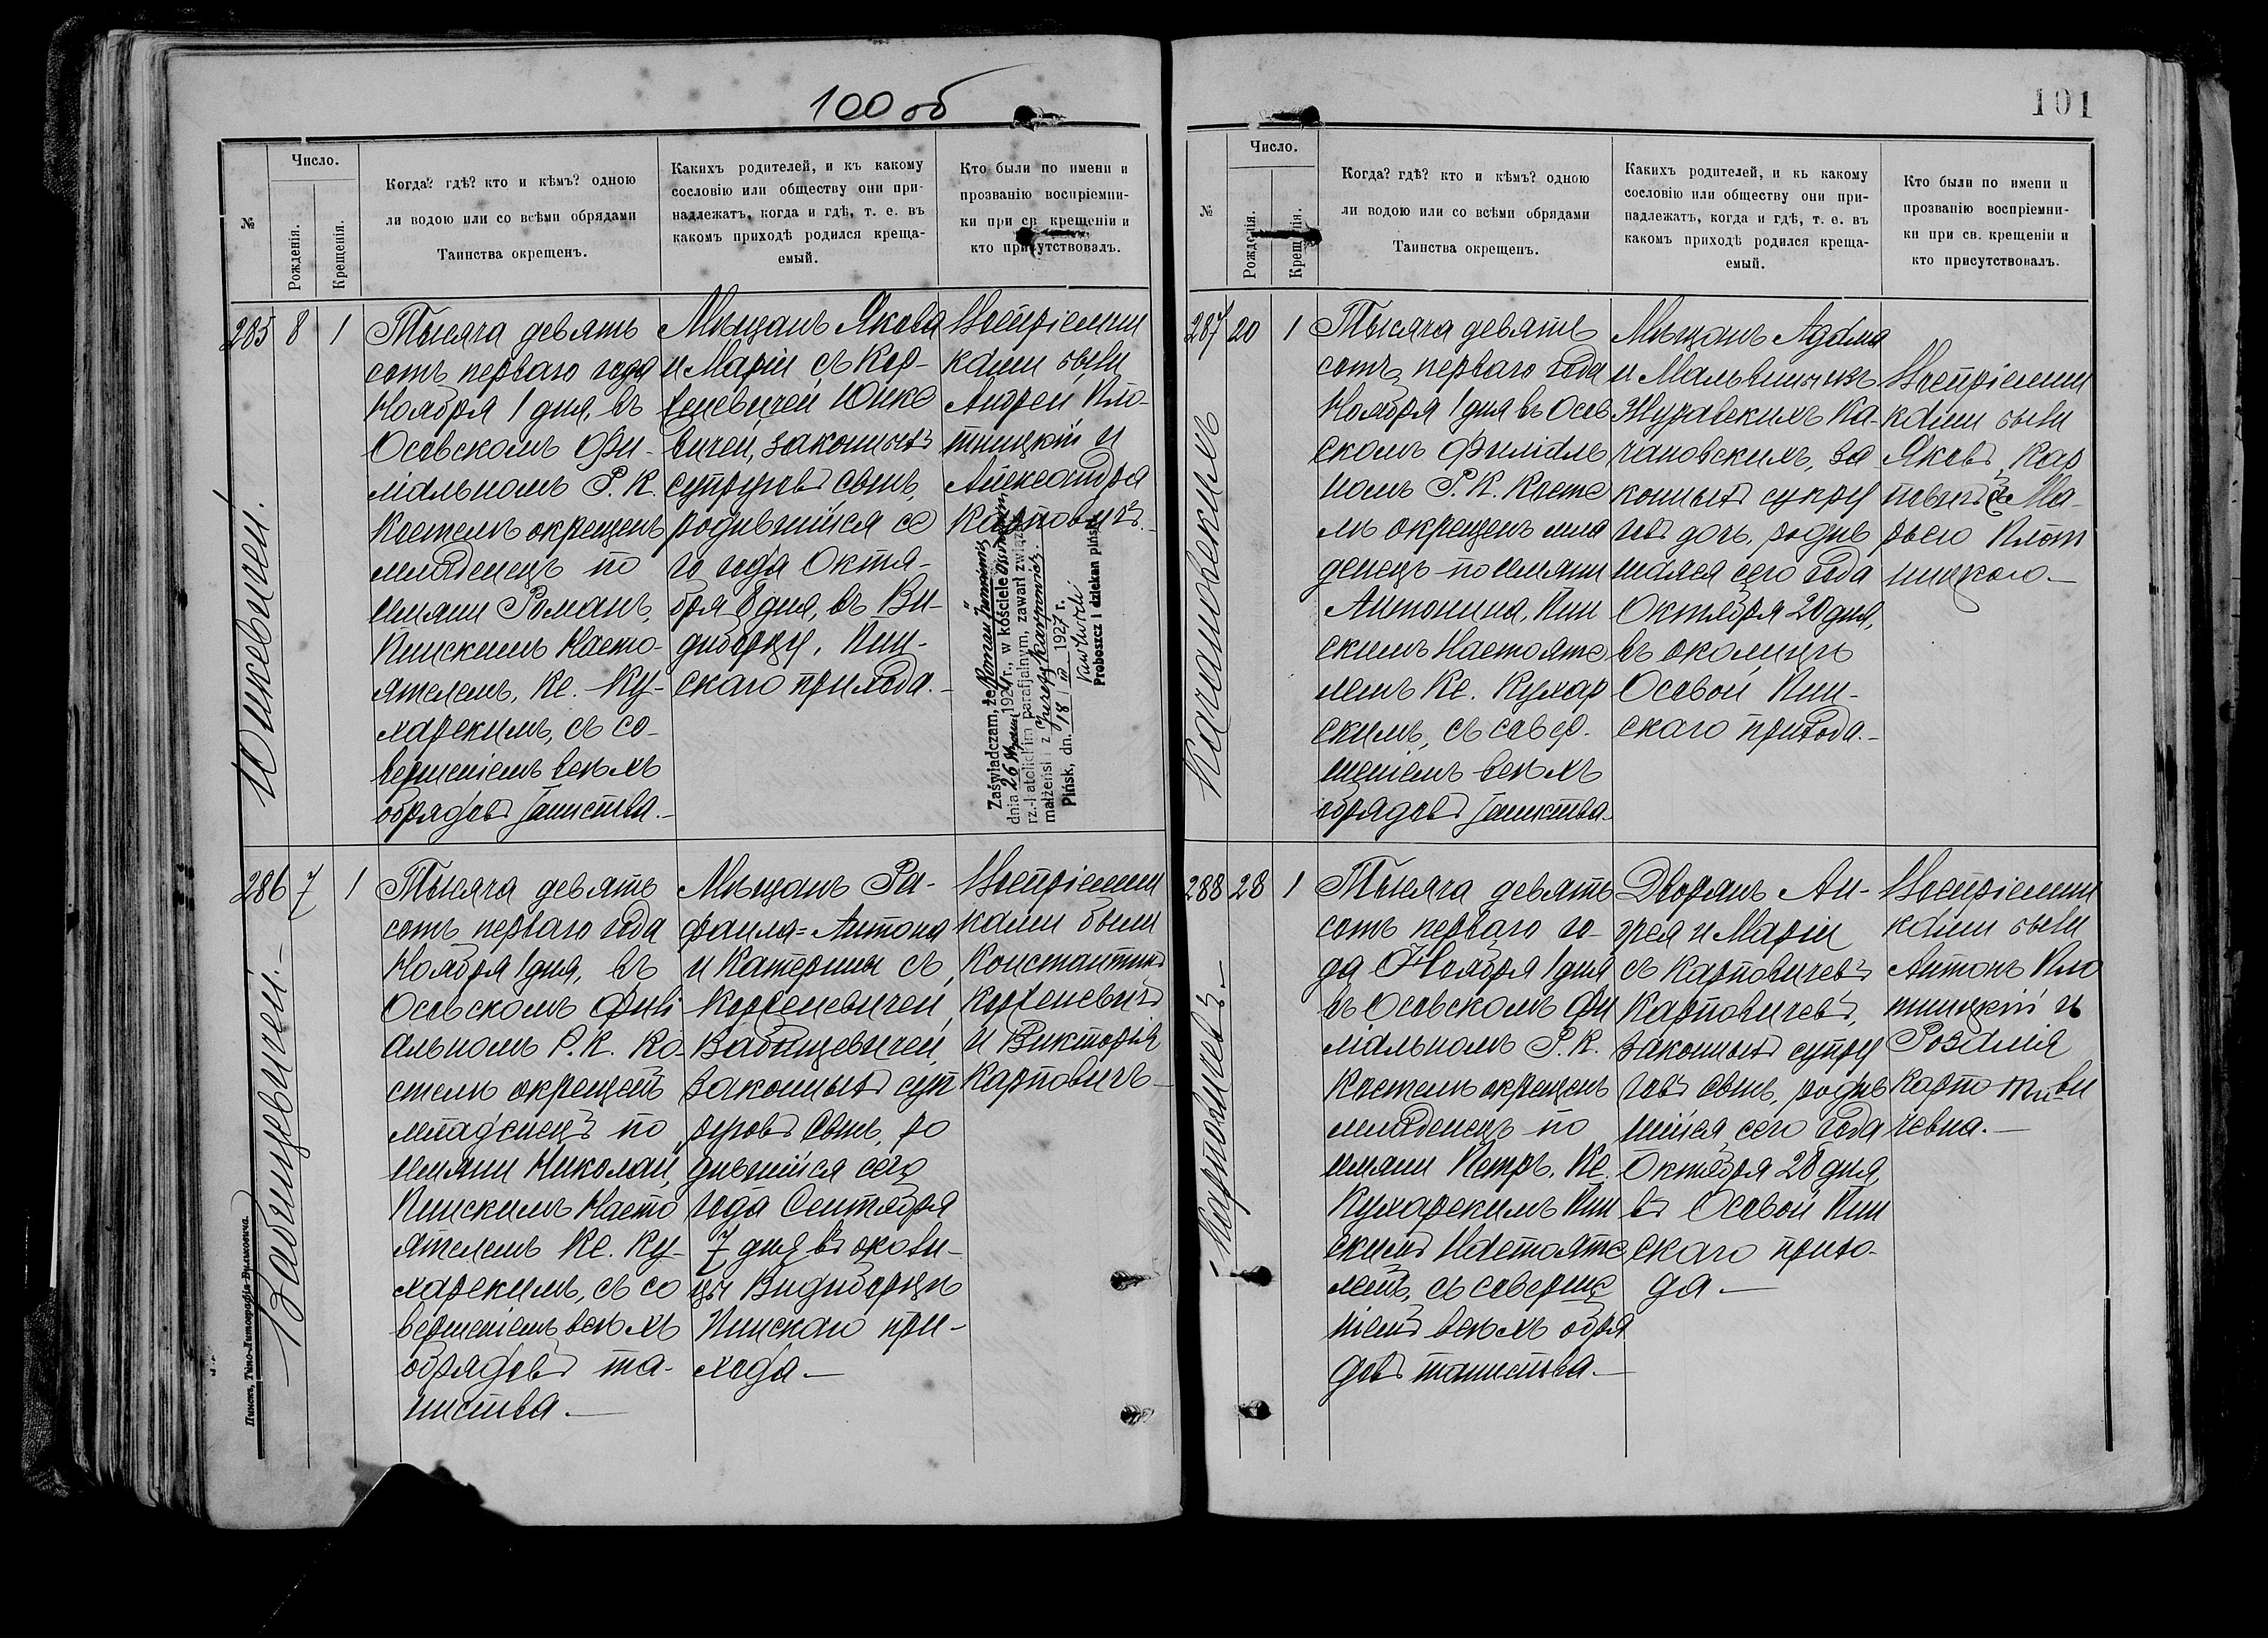 100 об
№
Число.
Рожденія.
Крещенія.
Когда? гдѣ? кто и кѣмъ? одною
ли водою или со всѣми обрядами
Таинства окрещенъ.
Какихъ родителей, и къ какому
сословію или обществу они при-
надлежатъ, когда и гдѣ, т. е. въ
какомъ приходѣ родился креща-
емый.
Кто были по имени и
прозванію воспріемни-
ки при св. крещеніи и
кто присутствовалъ.
285 8 1
Юшкевичей.
Тысяча девять
сотъ перваго года
Ноября 1 дня, въ
Осовскомъ Фи-
ліальномъ Р. К.
Костелѣ окрещенъ
младенецъ по
имени Романъ,
Пинскимъ Насто-
ятелемъ, Кс. Ку-
харскимъ, съ со-
вершеніемъ всѣхъ
обрядовъ таинства.-
Мѣщанъ Якова
и Маріи съ Кор-
женевичей Юшке
вичей, законныхъ
супруговъ сынъ,
родившійся се
го года Октя-
бря 8 дня, въ Ви-
диборцу, Пин-
скаго прихода.-
Воспріемни
ками были
Андрей Пло-
тницкій и
Александра
Карповичъ.
Zaświadczam, że Roman
dnia 26 192 r., w kościele
rz.-katolickim parafjalnym, zawarł związek
małżeński z Karpowicz.
Pińsk, dn. 18 III 1927 r.
Proboszcz i dziekan piński
286 7 1
Вабищевичей.-
Тысяча девять
сотъ перваго года
Ноября 1 дня, въ
Осовскомъ Филі
альномъ Р. К. Ко-
стелѣ окрещенъ
младенецъ по
имени Николай,
Пинскимъ Насто
ятелемъ Кс. Ку-
харскимъ, съ со
вершеніемъ всѣхъ
обрядовъ та-
инства.-
Мѣщанъ Ра-
фаила=Антона
и Катерины съ
Корженевичей
Вабищевичей
законныхъ суп
руговъ сынъ, ро
дившійся сего
года Сентября
7 дня въ околи-
цы Видиборцѣ
Пинскаго при-
хода-
Воспріемни
ками были
Константинъ
Курженевичъ
и Викторія
Карповичъ-
Пинскъ, Типо-Литографія Вульковича.
101
№
Число.
Рожденія.
Крещенія.
Когда? гдѣ? кто и кѣмъ? одною
ли водою или со всѣми обрядами
Таинства окрещенъ.
Какихъ родителей, и къ какому
сословію или обществу они при-
надлежатъ, когда и гдѣ, т. е. въ
какомъ приходѣ родился креща-
емый.
Кто были по имени и
прозванію воспріемни-
ки при св. крещеніи и
кто присутствовалъ.
287 20 1
Качановскихъ
Тысяча девять
сотъ перваго года
Ноября 1 дня въ Осов
скомъ Филіаль
номъ Р. К. Косте
лѣ окрещенъ мла
денецъ по имени
Антонина, Пин
скимъ Настояте
лемъ Кс. Кухар
скимъ, съ совер-
шеніемъ всѣхъ
обрядовъ таинства.-
Мѣщанъ Адама
и Мальвины изъ
Журавскихъ Ка-
чановскихъ, за
конныхъ супру
говъ дочь, родив
шаяся сего года
Октября 20 дня,
въ околицѣ
Осовой Пин-
скаго прихода.-
Воспріемни
ками были
Яковъ Кар
повичъ съ Ма-
рьею Плот
ницкою.-
288 28 1
-Карповичевъ-
Тысяча девять
сотъ перваго го-
да Ноября 1 дня
въ Осовскомъ Фи
ліальномъ Р. К.
Костелѣ окрещенъ
младенецъ по
имени Петръ, Кс.
Кухарскимъ Пин
скимъ Настояте
лемъ, съ соверше
ніемъ всѣхъ обря
довъ таинства.-
Дворянъ Ан-
дрея и Маріи
съ Карповичевъ
Карповичевъ,
законныхъ супру
говъ сынъ, родив
шійся сего года
Октября 28 дня,
въ Осовой Пин
скаго прихо-
да-
Воспріемни
ками были
Антонъ Пло
тницкій и
Розалія
чевна.-